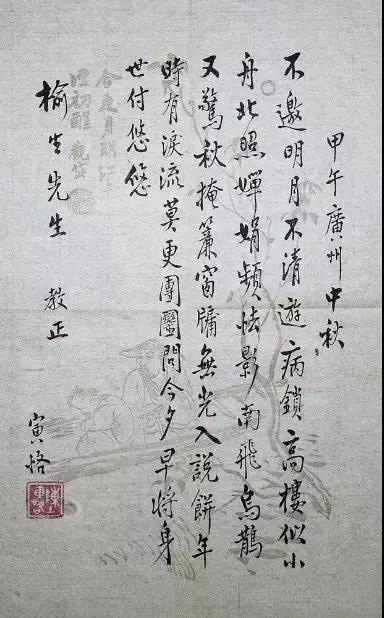 甲午廣州中秋
不邀明月不清遊病鎖高樓似小
舟北照嬋娟頻怯影南飛烏鵲
又驚秋掩簾窗牖無光入說餅年
時有淚流莫更團圞問今夕早將身
世付悠悠
月明江上
酒初醒
榆生先生 教正
寅恪